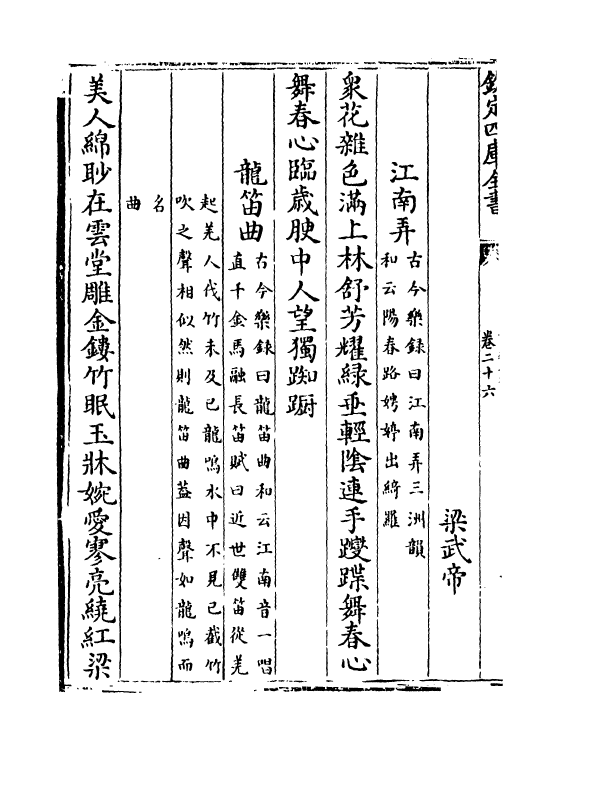 欽定四庫全書
卷二十六
梁武帝
江南弄
古今樂録曰江南弄三洲韻
和云陽春路娉婷出綺羅
衆花雜色滿上林舒芳耀緑垂輕陰連手躞蹀舞春心
舞春心臨歳腴中人望獨踟蹰
龍笛曲
古今樂録曰龍笛曲和云江南音一唱
直千金馬融長笛賦曰近世雙笛從羌
起羌人伐竹未及已龍鳴水中不見已截竹
吹之聲相似然則龍笛曲蓋因聲如龍鳴而
名
曲
美人綿眇在雲堂雕金鏤竹眠玉牀婉愛寥亮繞紅梁